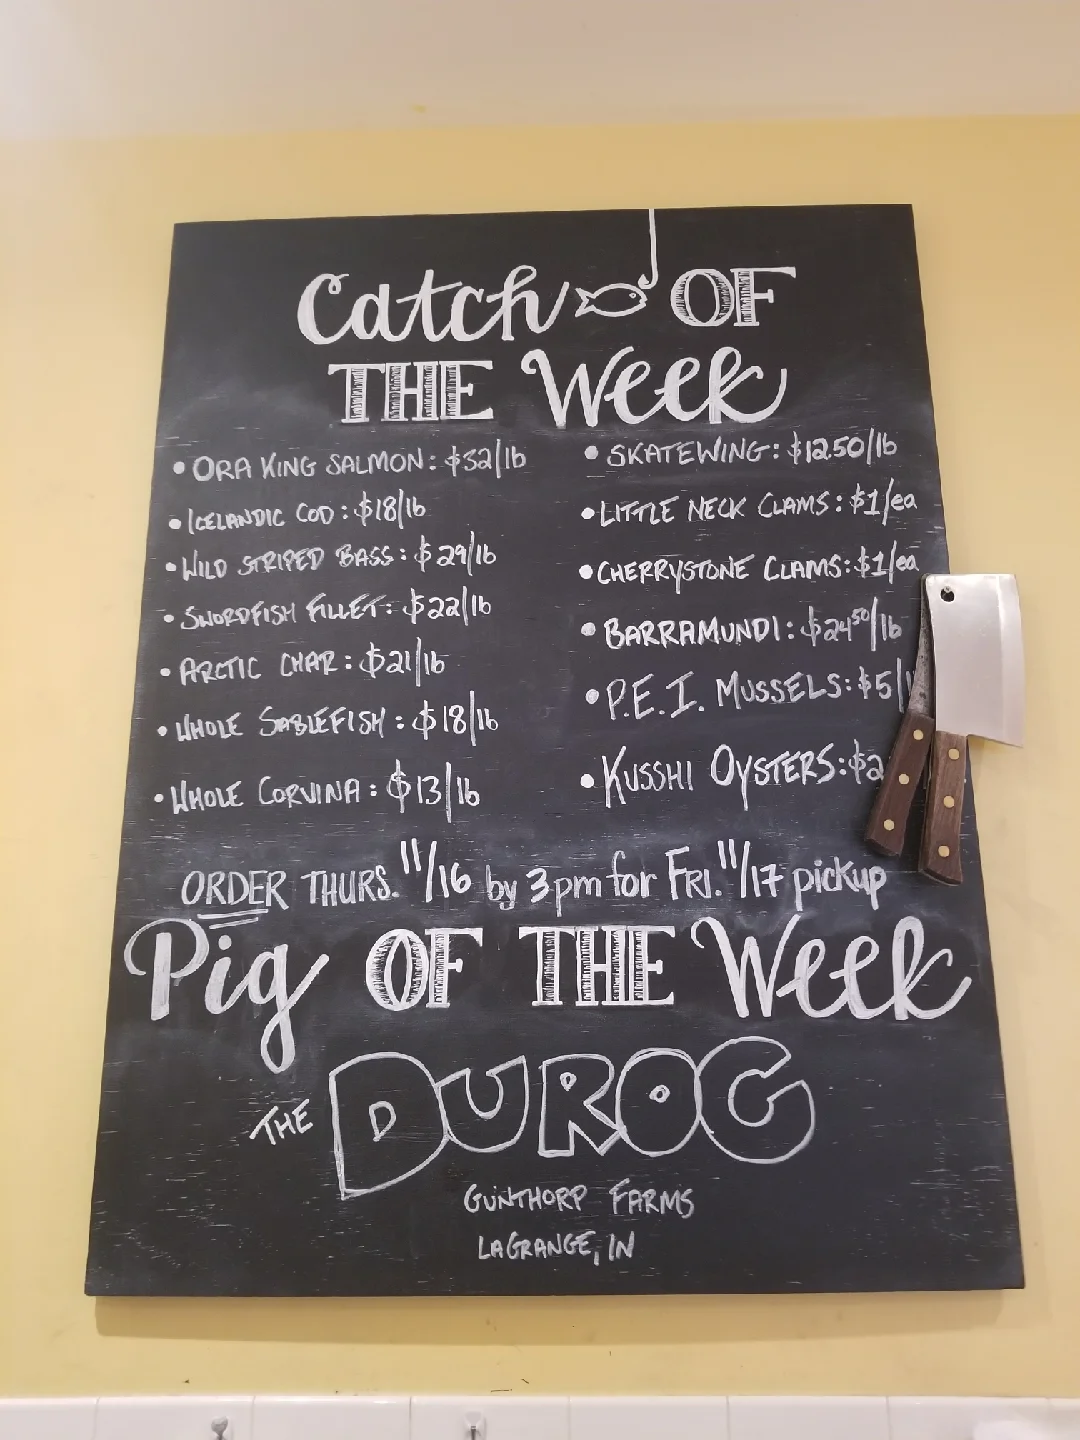 Catch OF
THE Week
• ORA KING SALMON: $32/lb
• ICELANDIC COD: $18/lb
• WILD STRIPED BASS: $29/lb
• SWORDFISH FILLET: $22/lb
• ARCTIC CHAR: $21/lb
• WHOLE SABLEFISH: $18/lb
• WHOLE CORVINA: $13/lb
• SKATEWING: $12.50/lb
• LITTLE NECK CLAMS: $1/ea
• CHERRYSTONE CLAMS: $1/ea
• BARRAMUNDI: $24⁵⁰/lb
• P.E.I. MUSSELS: $5/
• KUSSHI OYSTERS: $2
ORDER THURS. 11/16 by 3pm for FRI. 11/17 pickup
Pig OF THE Week
THE DUROC
GUNTHORP FARMS
LAGRANGE, IN